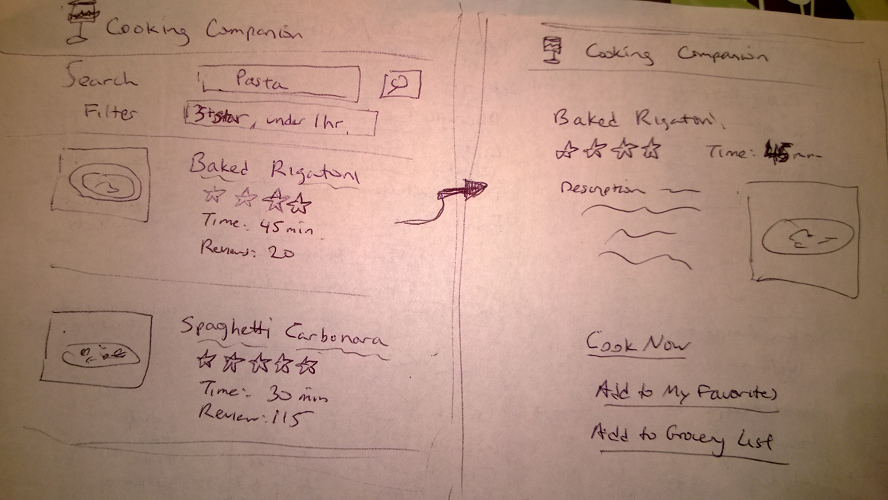 Cooking Companion
Search Pasta
Filter 3+star, under 1hr.
Baked Rigatoni
Time: 45 min.
Reviews: 20
Spaghetti Carbonara
Time: 30 min
Review: 115
Cooking Companion
Baked Rigatoni
Time: 45 min
Description
Cook Now
Add to My Favorites
Add to Grocery List